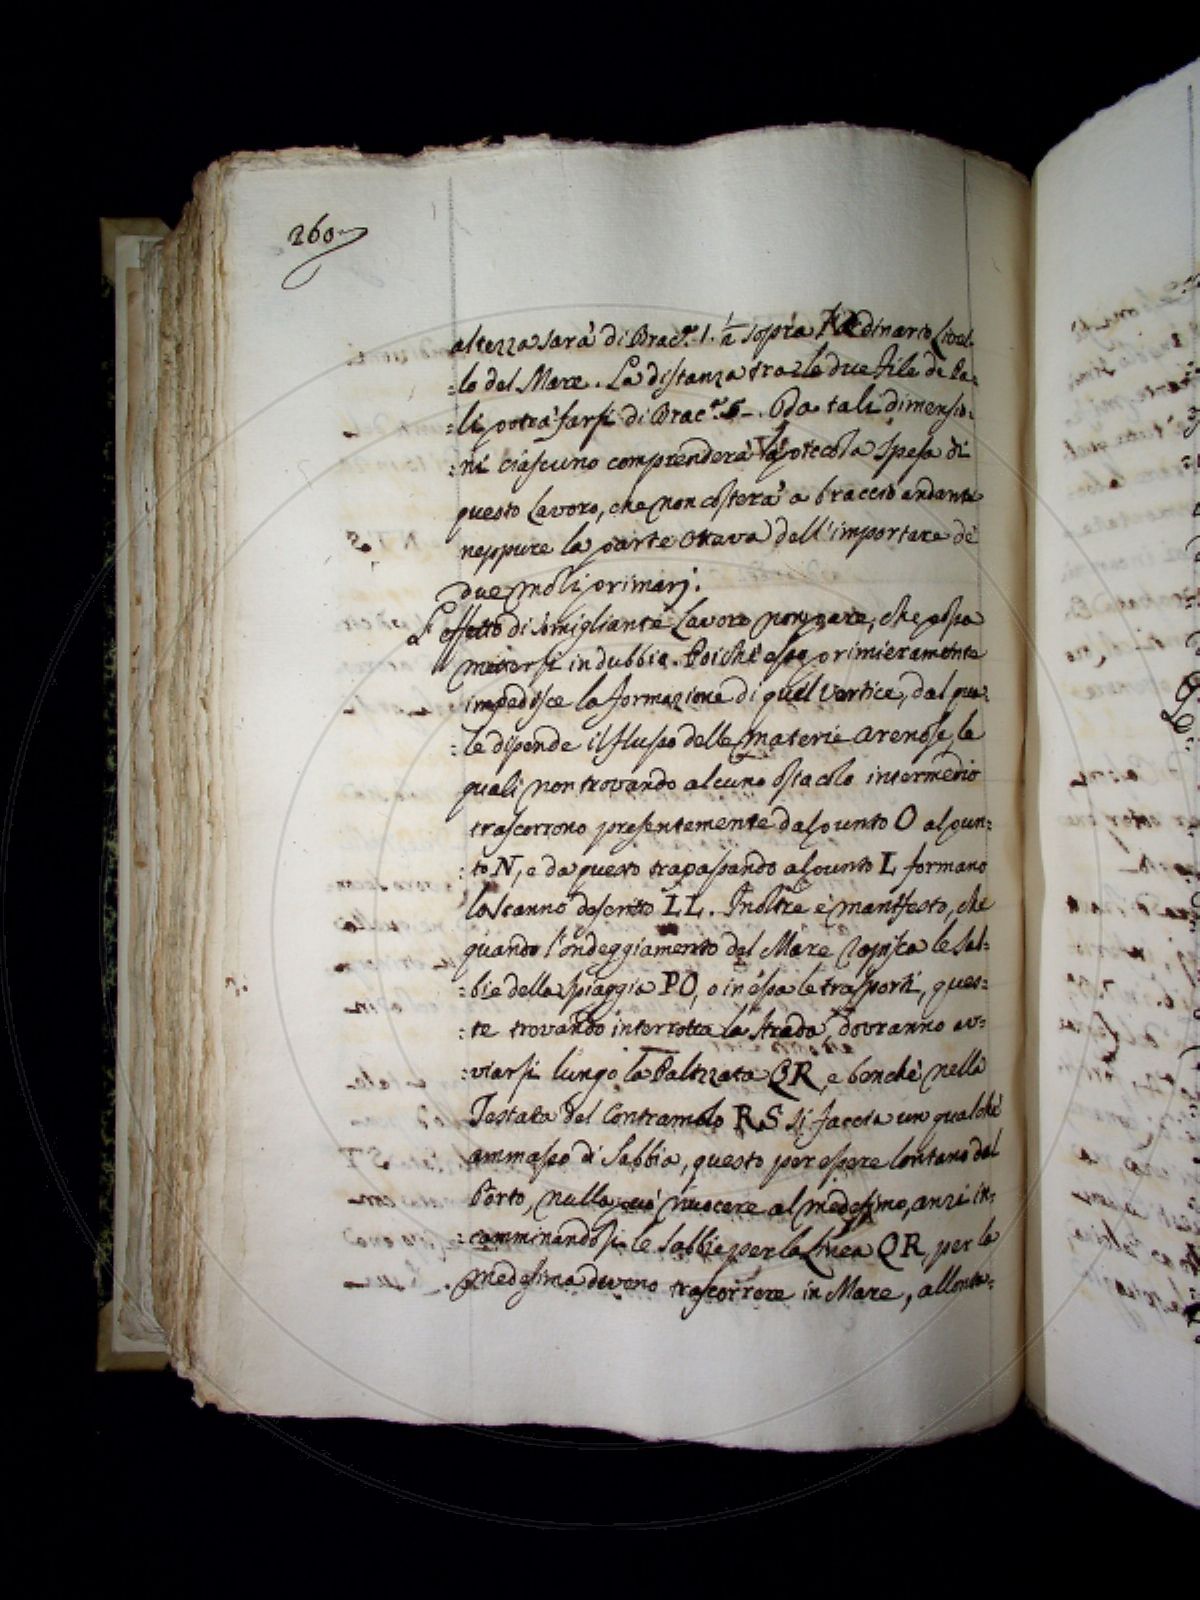 260
altezza sarà di Brac.ª 1. ½ sopra l'ordinario Livel-
:lo del Mare. La distanza tra le due File de Pa-
:li potrà farsi di Brac.ª 5_. Da tali dimensio-
:ni ciascuno comprenderà la piccola spesa di
questo Lavoro, che non costerà a braccio andante
neppure la parte ottava dell'importare de'
due moli primarj.
L'effetto di somigliante Lavoro non pare, che possa
mettersi in dubbio. Poichè esso primieramente
impedisce la formazione di quel Vortice, dal qua-
:le dipende il flusso delle materie arenose, le
quali non trovando alcuno ostacolo intermedio
trascorrono presentemente dal punto O al pun-
:to N, e da questo trapassando al punto L formano
lo scanno descritto LL. Inoltre è manifesto, che
quando l'ondeggiamento del Mare rapisca le Sab-
:bie della spiaggia PO, o in essa le trasporti, ques-
:te trovando interrotta la strada, dovranno av-
:viarsi lungo la Palizzata QR, e benchè nella
Testata del Contramolo RS si faccia un qualche
ammasso di Sabbia, questo per essere lontano dal
Porto, nulla può nuocere al medesimo, anzi in-
:camminandosi le Sabbie per la Linea QR, per la
medesima devono trascorrere in Mare, allonta-